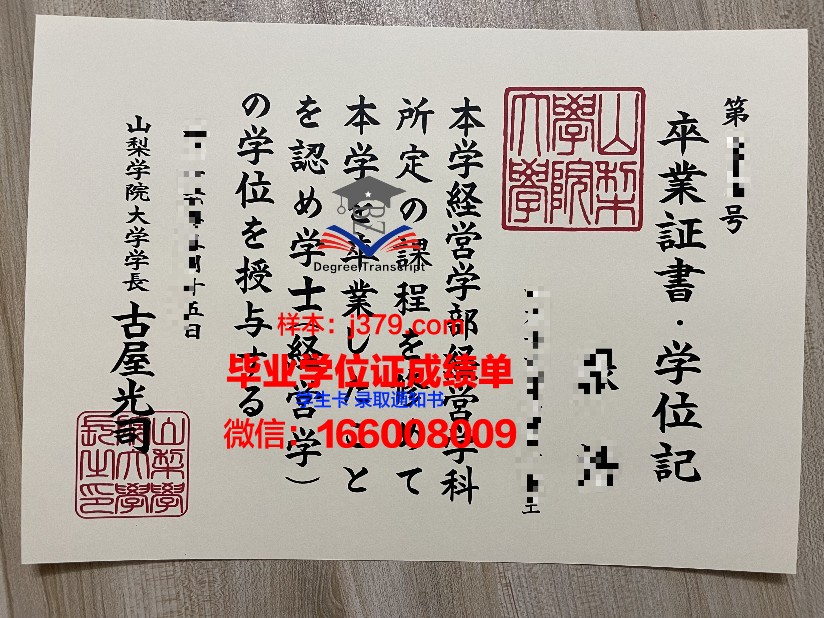 第
号
卒業証書・学位記
山梨
學院
大學
本学経営学部経営学科
所定の課程を修めて
本学を卒業したこと
を認め学士（経営学）
の学位を授与する
月十五日
山梨学院大学学長 古屋光司
山梨學
院大學
長之印
Degree/Transcript
样本：j379.com
毕业学位证成绩单
学生卡 录取通知书
微信：166008009